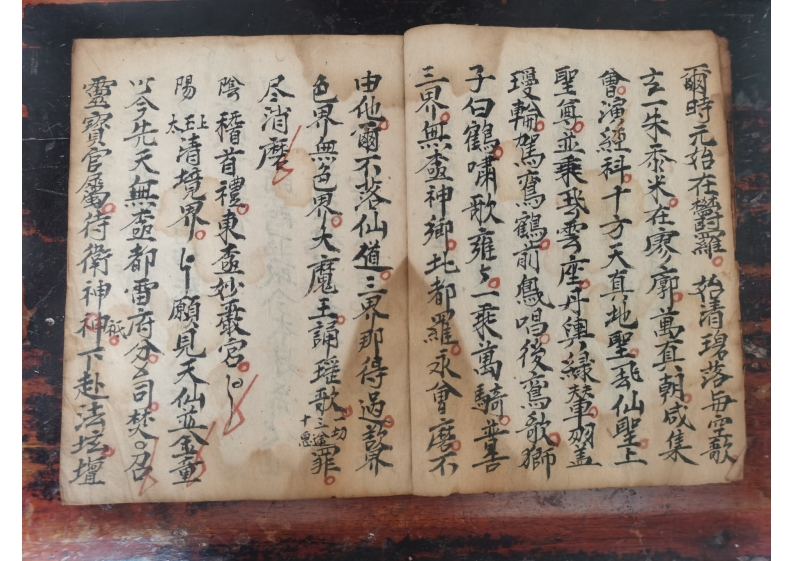 爾時元始在欝羅 始清碧落每空歌
玄一朱黍米在寥廓萬真朝咸集
會演經科十方天真地聖去仙聖上
聖尊並乘雲座丹輿綠輦羽蓋
瓊輪駕鸞鶴前鳳唱後鸞歌獅
子白鶴嘯歌雍々一乘萬騎並善
三界無壺神鄉北都羅永會磨不
由他爾不落仙道三界那得過欲界
色界無色界大魔王誦瑤歌一切十惡三途罪
尽消磨
陰稽首禮東壺妙嚴宮
陽太上玉清境界願見天仙並金童
以今先天無壺都雷府分司焚召
靈寶官屬侍衛神神祇下赴法坛壇